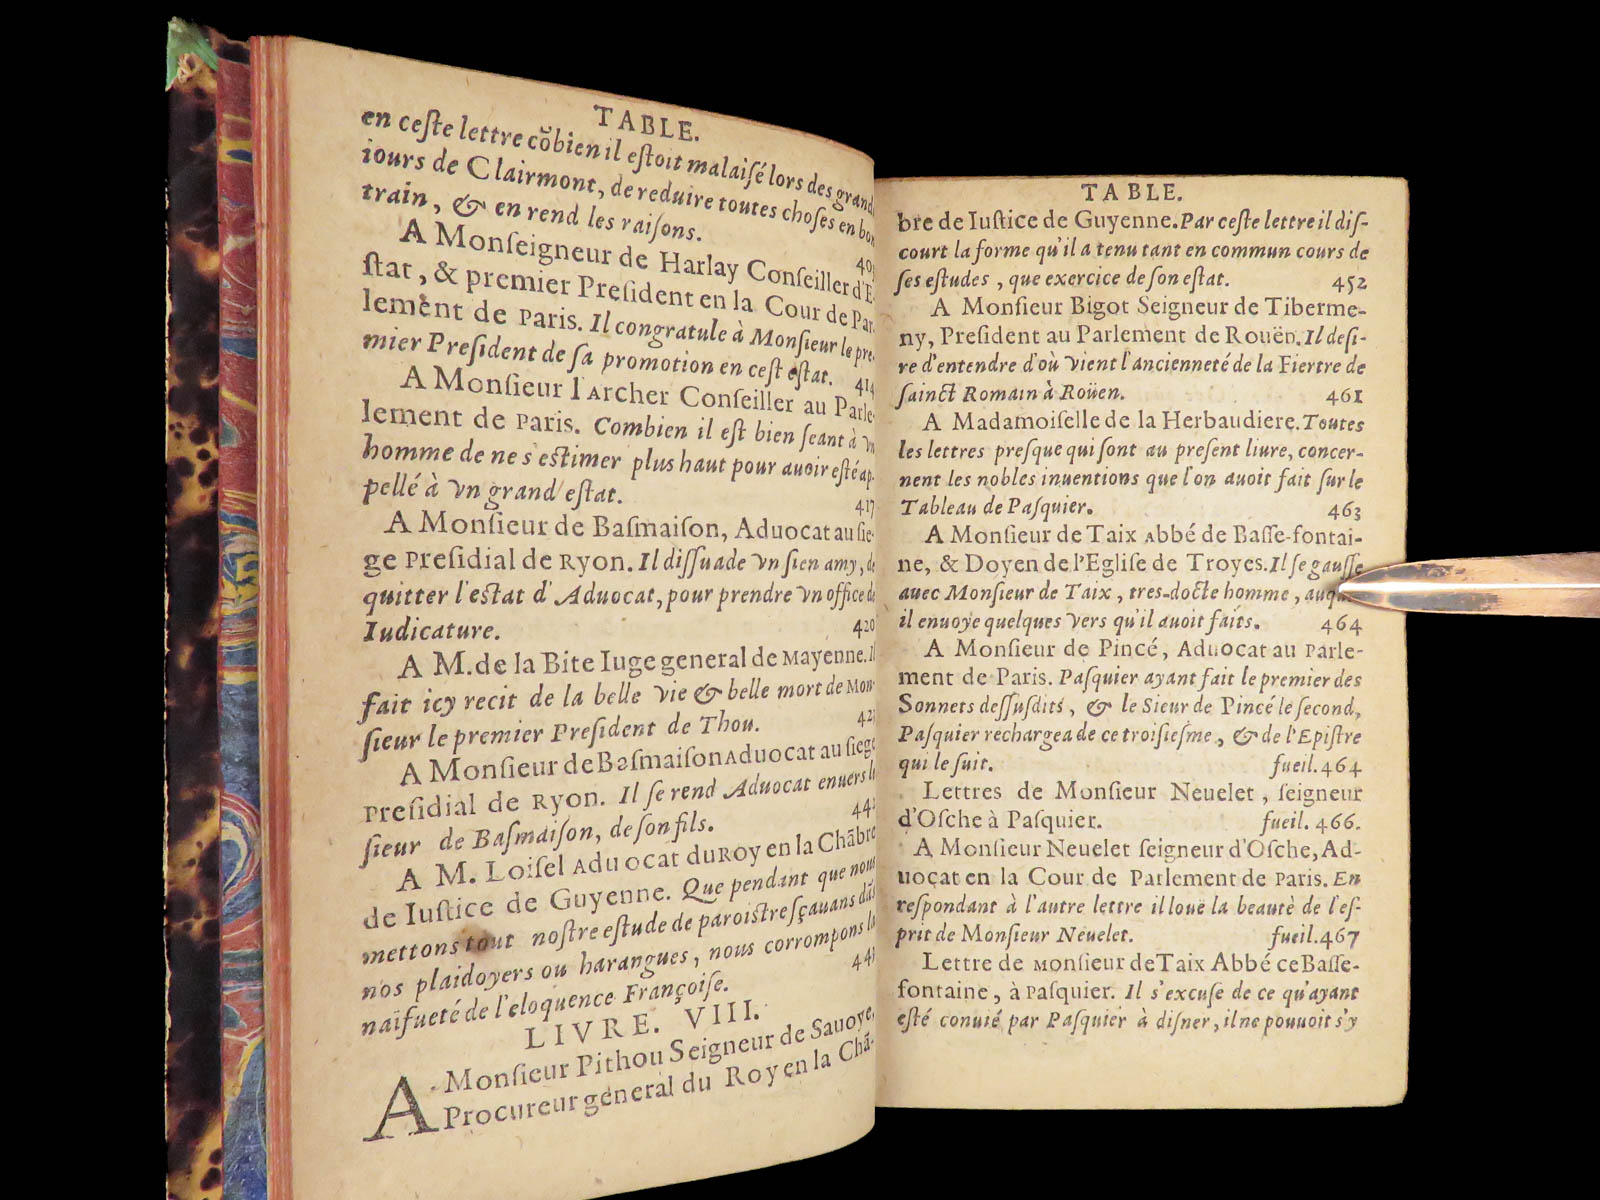 TABLE.
en ceſte lettre cõbien il eſtoit malaiſé lors des grand
iours de Clairmont, de reduire toutes choſes en bon
train, & en rend les raiſons.
A Monſeigneur de Harlay Conſeiller d'E-
ſtat, & premier Preſident en la Cour de Par
lement de Paris. Il congratule à Monſieur le pre-
mier Preſident de ſa promotion en ceſt eſtat. 414
A Monſieur l'Archer Conſeiller au Parle-
lement de Paris. Combien il eſt bien ſeant à vn
homme de ne s'eſtimer plus haut pour auoir eſté ap-
pellé à vn grand eſtat. 417
A Monſieur de Baſmaiſon, Aduocat au ſie-
ge Preſidial de Ryon. Il diſſuade vn ſien amy, de
quitter l'eſtat d'Aduocat, pour prendre vn office de
Iudicature. 420
A M. de la Bite Iuge general de Mayenne. Il
fait icy recit de la belle vie & belle mort de Mon-
ſieur le premier Preſident de Thou.
A Monſieur de Baſmaiſon Aduocat au ſiege
Preſidial de Ryon. Il ſe rend Aduocat enuers le
ſieur de Baſmaiſon, de ſon fils.
A M. Loiſel Aduocat du Roy en la Chãbre
de Iuſtice de Guyenne. Que pendant que nous
mettons tout noſtre eſtude de paroiſtre ſçauans dãs
nos plaidoyers ou harangues, nous corrompons la
naïfueté de l'eloquence Françoiſe.
LIVRE. VIII.
A Monſieur Pithou Seigneur de Sauoye,
Procureur general du Roy en la Chã-
TABLE.
bre de Iuſtice de Guyenne. Par ceſte lettre il diſ-
court la forme qu'il a tenu tant en commun cours de
ſes eſtudes, que exercice de ſon eſtat. 452
A Monſieur Bigot Seigneur de Tiberme-
ny, Preſident au Parlement de Rouën. Il deſi-
re d'entendre d'où vient l'ancienneté de la Fiertre de
ſainct Romain à Roüen. 461
A Madamoiſelle de la Herbaudiere. Toutes
les lettres preſque qui ſont au preſent liure, concer-
nent les nobles inuentions que l'on auoit fait ſur le
Tableau de Paſquier. 463
A Monſieur de Taix Abbé de Baſſe-fontai-
ne, & Doyen de l'Egliſe de Troyes. Il ſe gauſſe
auec Monſieur de Taix, tres-docte homme, auq
il enuoye quelques vers qu'il auoit faits. 464
A Monſieur de Pincé, Aduocat au Parle-
ment de Paris. Paſquier ayant fait le premier des
Sonnets deſſuſdits, & le Sieur de Pincé le ſecond,
Paſquier rechargea de ce troiſieſme, & de l'Epiſtre
qui le ſuit. fueil. 464
Lettres de Monſieur Neuelet, ſeigneur
d'Oſche à Paſquier. fueil. 466.
A Monſieur Neuelet ſeigneur d'Oſche, Ad-
uocat en la Cour de Parlement de Paris. En
reſpondant à l'autre lettre il louë la beauté de l'eſ-
prit de Monſieur Neuelet. fueil. 467
Lettre de Monſieur de Taix Abbé ce Baſſe-
fontaine, à Paſquier. Il s'excuſe de ce qu'ayant
eſté conuié par Paſquier à diſner, il ne pouuoit s'y